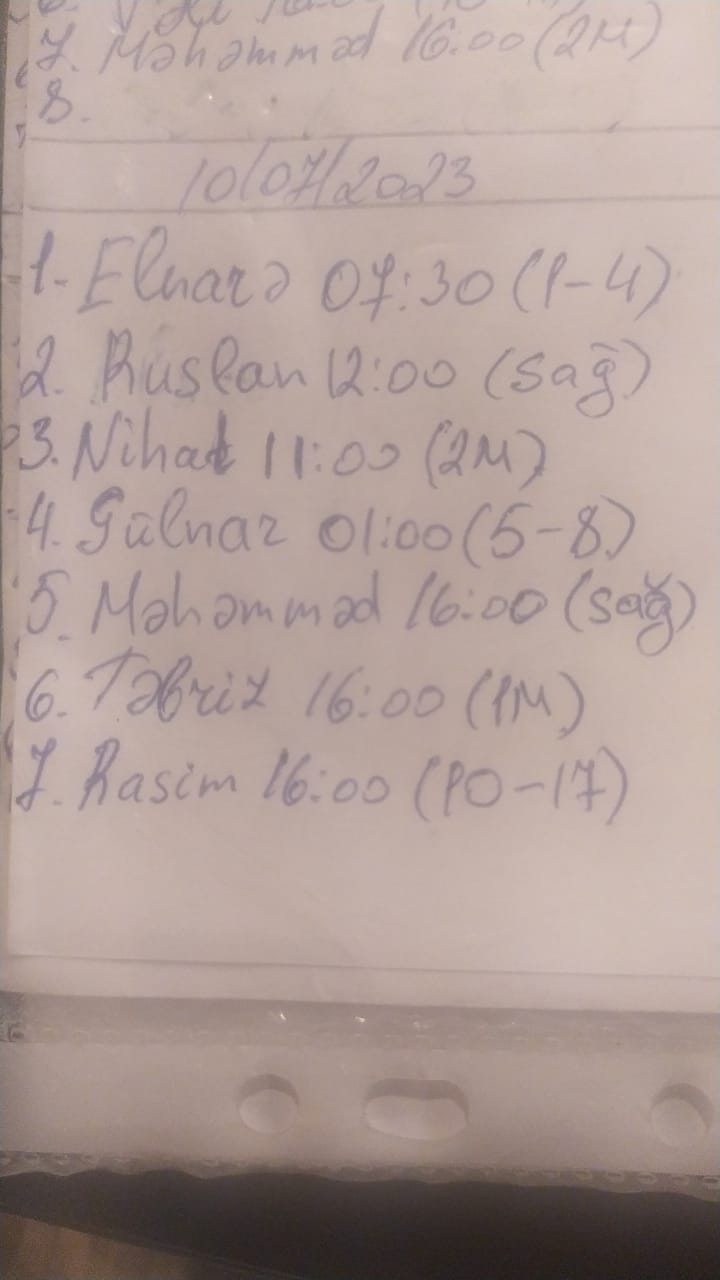 7. Məhəmməd 16:00 (2M)
8.
10/07/2023
1. Elnarə 07:30 (1-4)
2. Ruslan 12:00 (sağ)
3. Nihat 11:00 (2M)
4. Gülnar 01:00 (5-8)
5. Məhəmməd 16:00 (sağ)
6. Təbriz 16:00 (1M)
7. Rasim 16:00 (10-17)